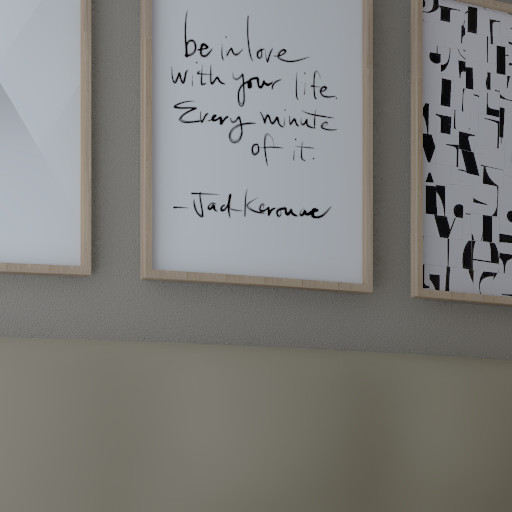 be in love
with your life.
Every minute
of it.
- Jack Kerouac